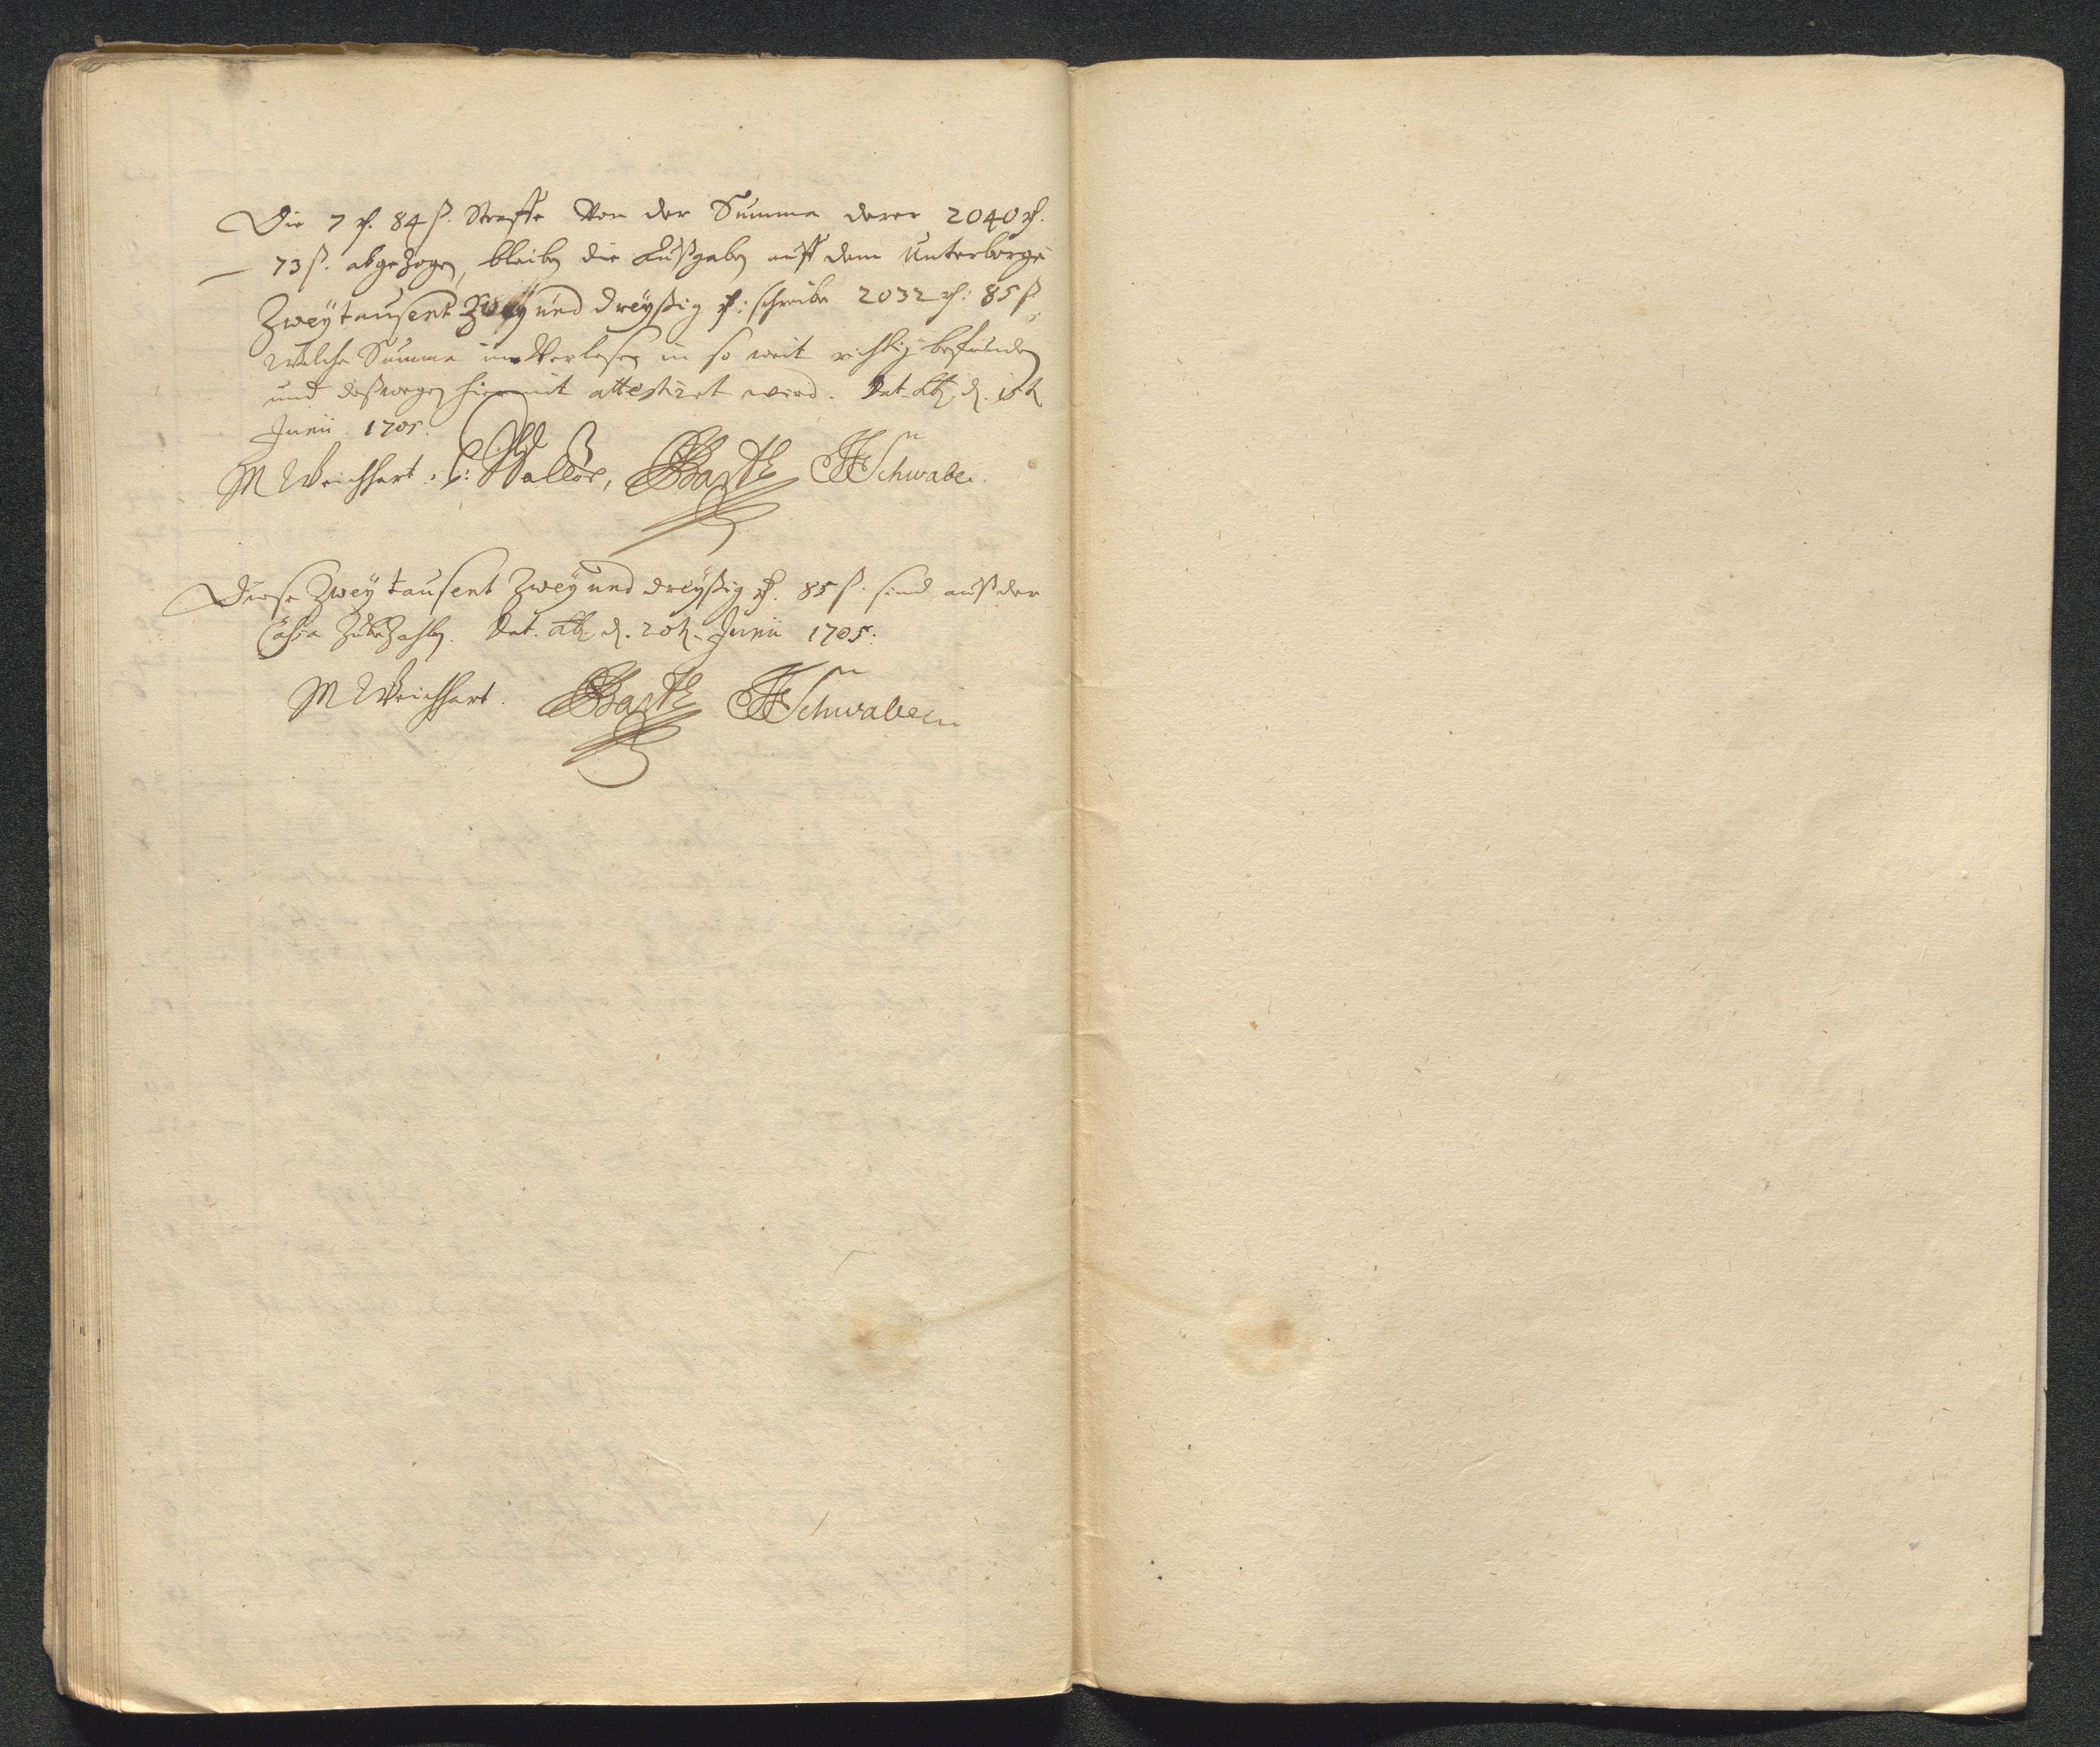 Die 7 rh. 84 ß. Straffe Von der Summa derer 2040 rh.
73 ß. abgezogen, bleiben die Außgaben auff dem Unterberge
Zweytausent Zwey und dreyßig rh: schreibe 2032 rh: 85 ß
welche Summa im Verlesen in so weit richtig befunden
und deßwegen hiermit attestiret wird. Dat. d.
Junii 1705.
M Weichhart. Barth Schwabe.
Diese Zwey tausent Zwey und dreyßig rh. 85 ß. sind auß der
Cassa Zubezahlen. Dat. d. 20t. Junii 1705.
M Weichhart. Barth Schwabe